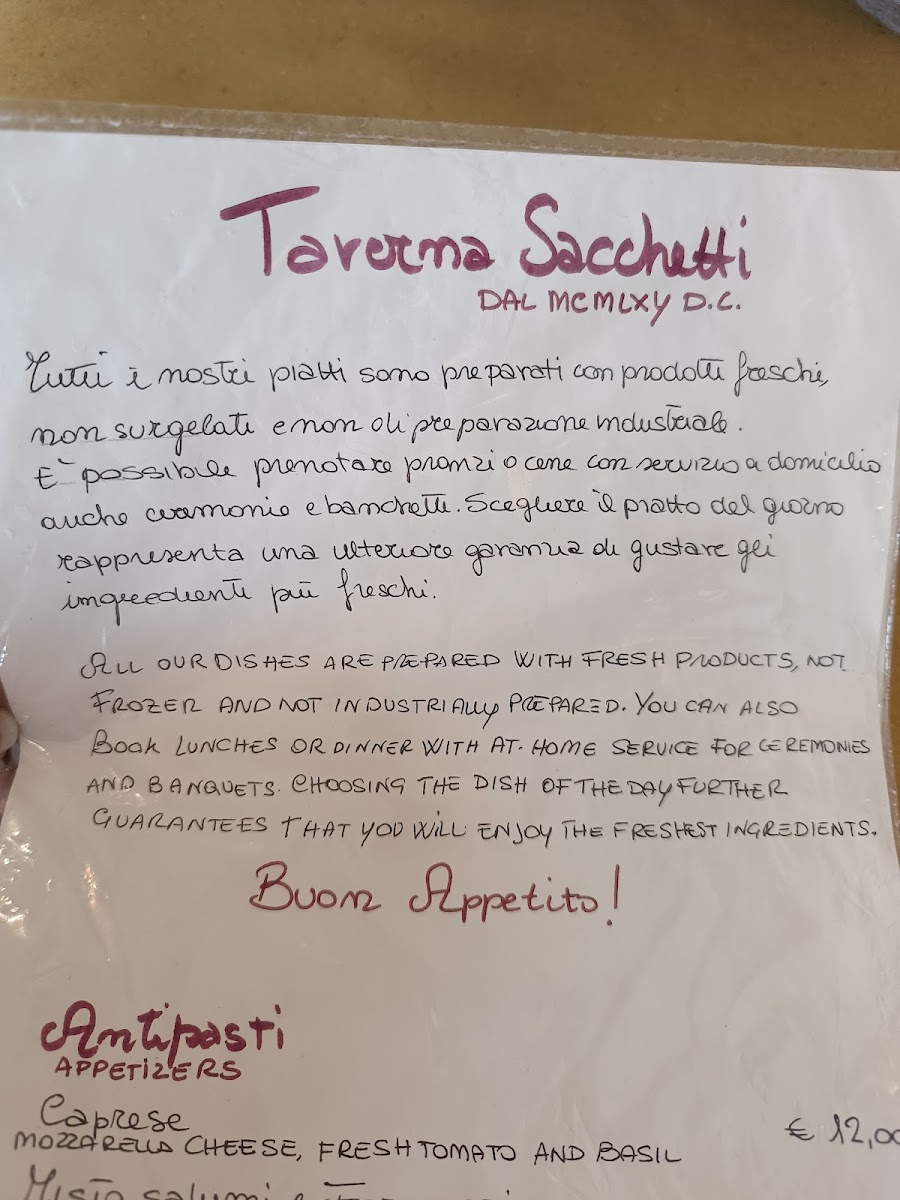 Taverna Sacchetti
DAL MCMLXV D.C.
Tutti i nostri piatti sono preparati con prodotti freschi,
non surgelati e non di preparazione industriale.
E' possibile prenotare pranzi o cene con servizio a domicilio
anche cerimonie e banchetti. Scegliere il piatto del giorno
rappresenta una ulteriore garanzia di gustare gli
ingredienti più freschi.
ALL OUR DISHES ARE PREPARED WITH FRESH PRODUCTS, NOT
FROZEN AND NOT INDUSTRIALLY PREPARED. YOU CAN ALSO
BOOK LUNCHES OR DINNER WITH AT-HOME SERVICE FOR CEREMONIES
AND BANQUETS. CHOOSING THE DISH OF THE DAY FURTHER
GUARANTEES THAT YOU WILL ENJOY THE FRESHEST INGREDIENTS.
Buon Appetito!
Antipasti
APPETIZERS
Caprese
MOZZARELLA CHEESE, FRESH TOMATO AND BASIL € 12,00
Misto salumi e